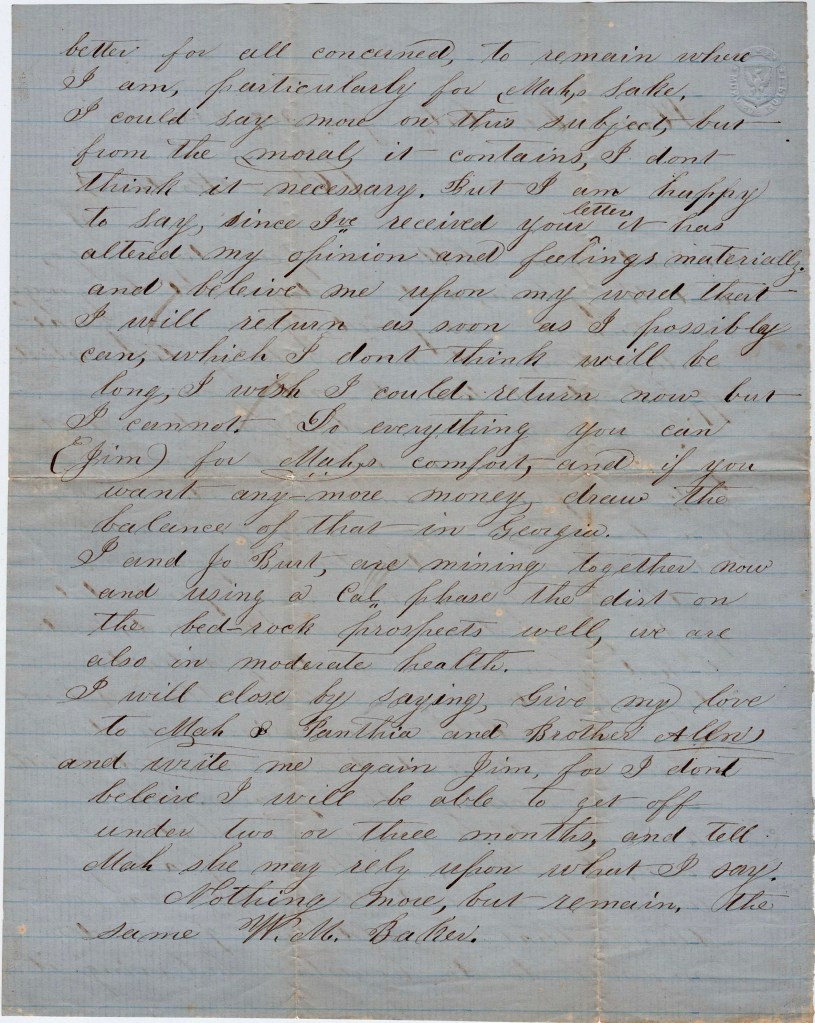 better for all concerned, to remain where
I am, particularly for Mah,s sake,
I could say more on this subject, but
from the moral, it contains, I dont
think it necessary. But I am happy
to say, since I've received your letter it has
altered my opinion and feelings materially.
and beleive me upon my word that
I will return as soon as I possibly
can, which I dont think will be
long, I wish I could return now but
I cannot. Do everything you can
(Jim) for Mah,s comfort, and if you
want any-more money, draw the
balance of that in Georgia.
I and Jo Burt, are mining together now
and using a Cal, phase the dirt on
the bed-rock prospects well, we are
also in moderate health.
I will close by saying, Give my love
to Mah & Panthia and Brother Allen
and write me again Jim, for I dont
beleive I will be able to get off
under two or three months, and tell
Mah she may rely upon what I say.
Nothing more, but remain, the
same W. M. Baker.